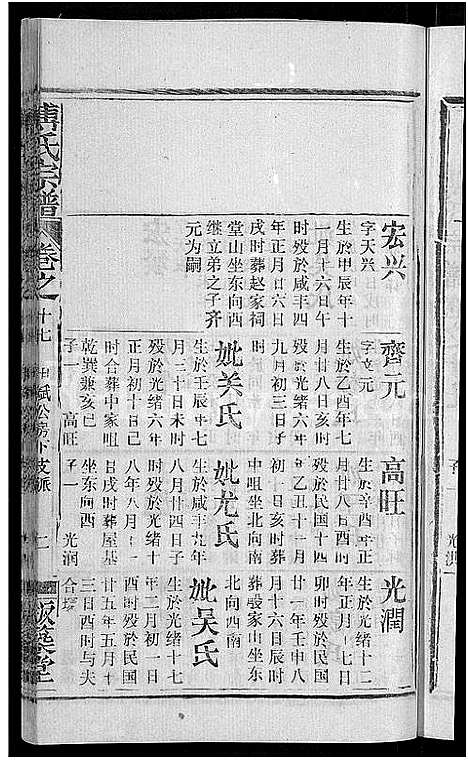 傅氏宗譜
卷之
十七
申斌公房下支脈
二
宏兴
字天兴
生於甲辰年十
一月十六日午
时殁於咸丰四
年正月廿六日
戌时葬赵家祠
堂山坐东向西
继立弟之子齐
元为嗣
齊元
字文元
生於乙酉年七
月廿八日亥时
殁於光绪六年
九月初三日子
时
妣关氏
生於壬辰年七
月二十日未时
殁於光绪六年
正月初十日已
时合葬中家咀
乾巽兼亥巳
子一
高旺
高旺
生於辛酉年正
月廿八日酉时
殁於民国十四
年乙丑十一月
初一日亥时葬
中咀坐北向南
妣尤氏
生於咸丰九年
八月廿四日子
时殁於光绪十
八年八月初一
日戌时葬屋基
坐东向西
子一
光润
光潤
生於光绪十二
年正月十七日
卯时殁於民国
廿一年壬申八
月十六日辰时
葬殷家山坐东
北向西南
妣吴氏
生於光绪十七
年二月初一日
酉时殁於民国
廿五年五月十
三日酉时与夫
合塚